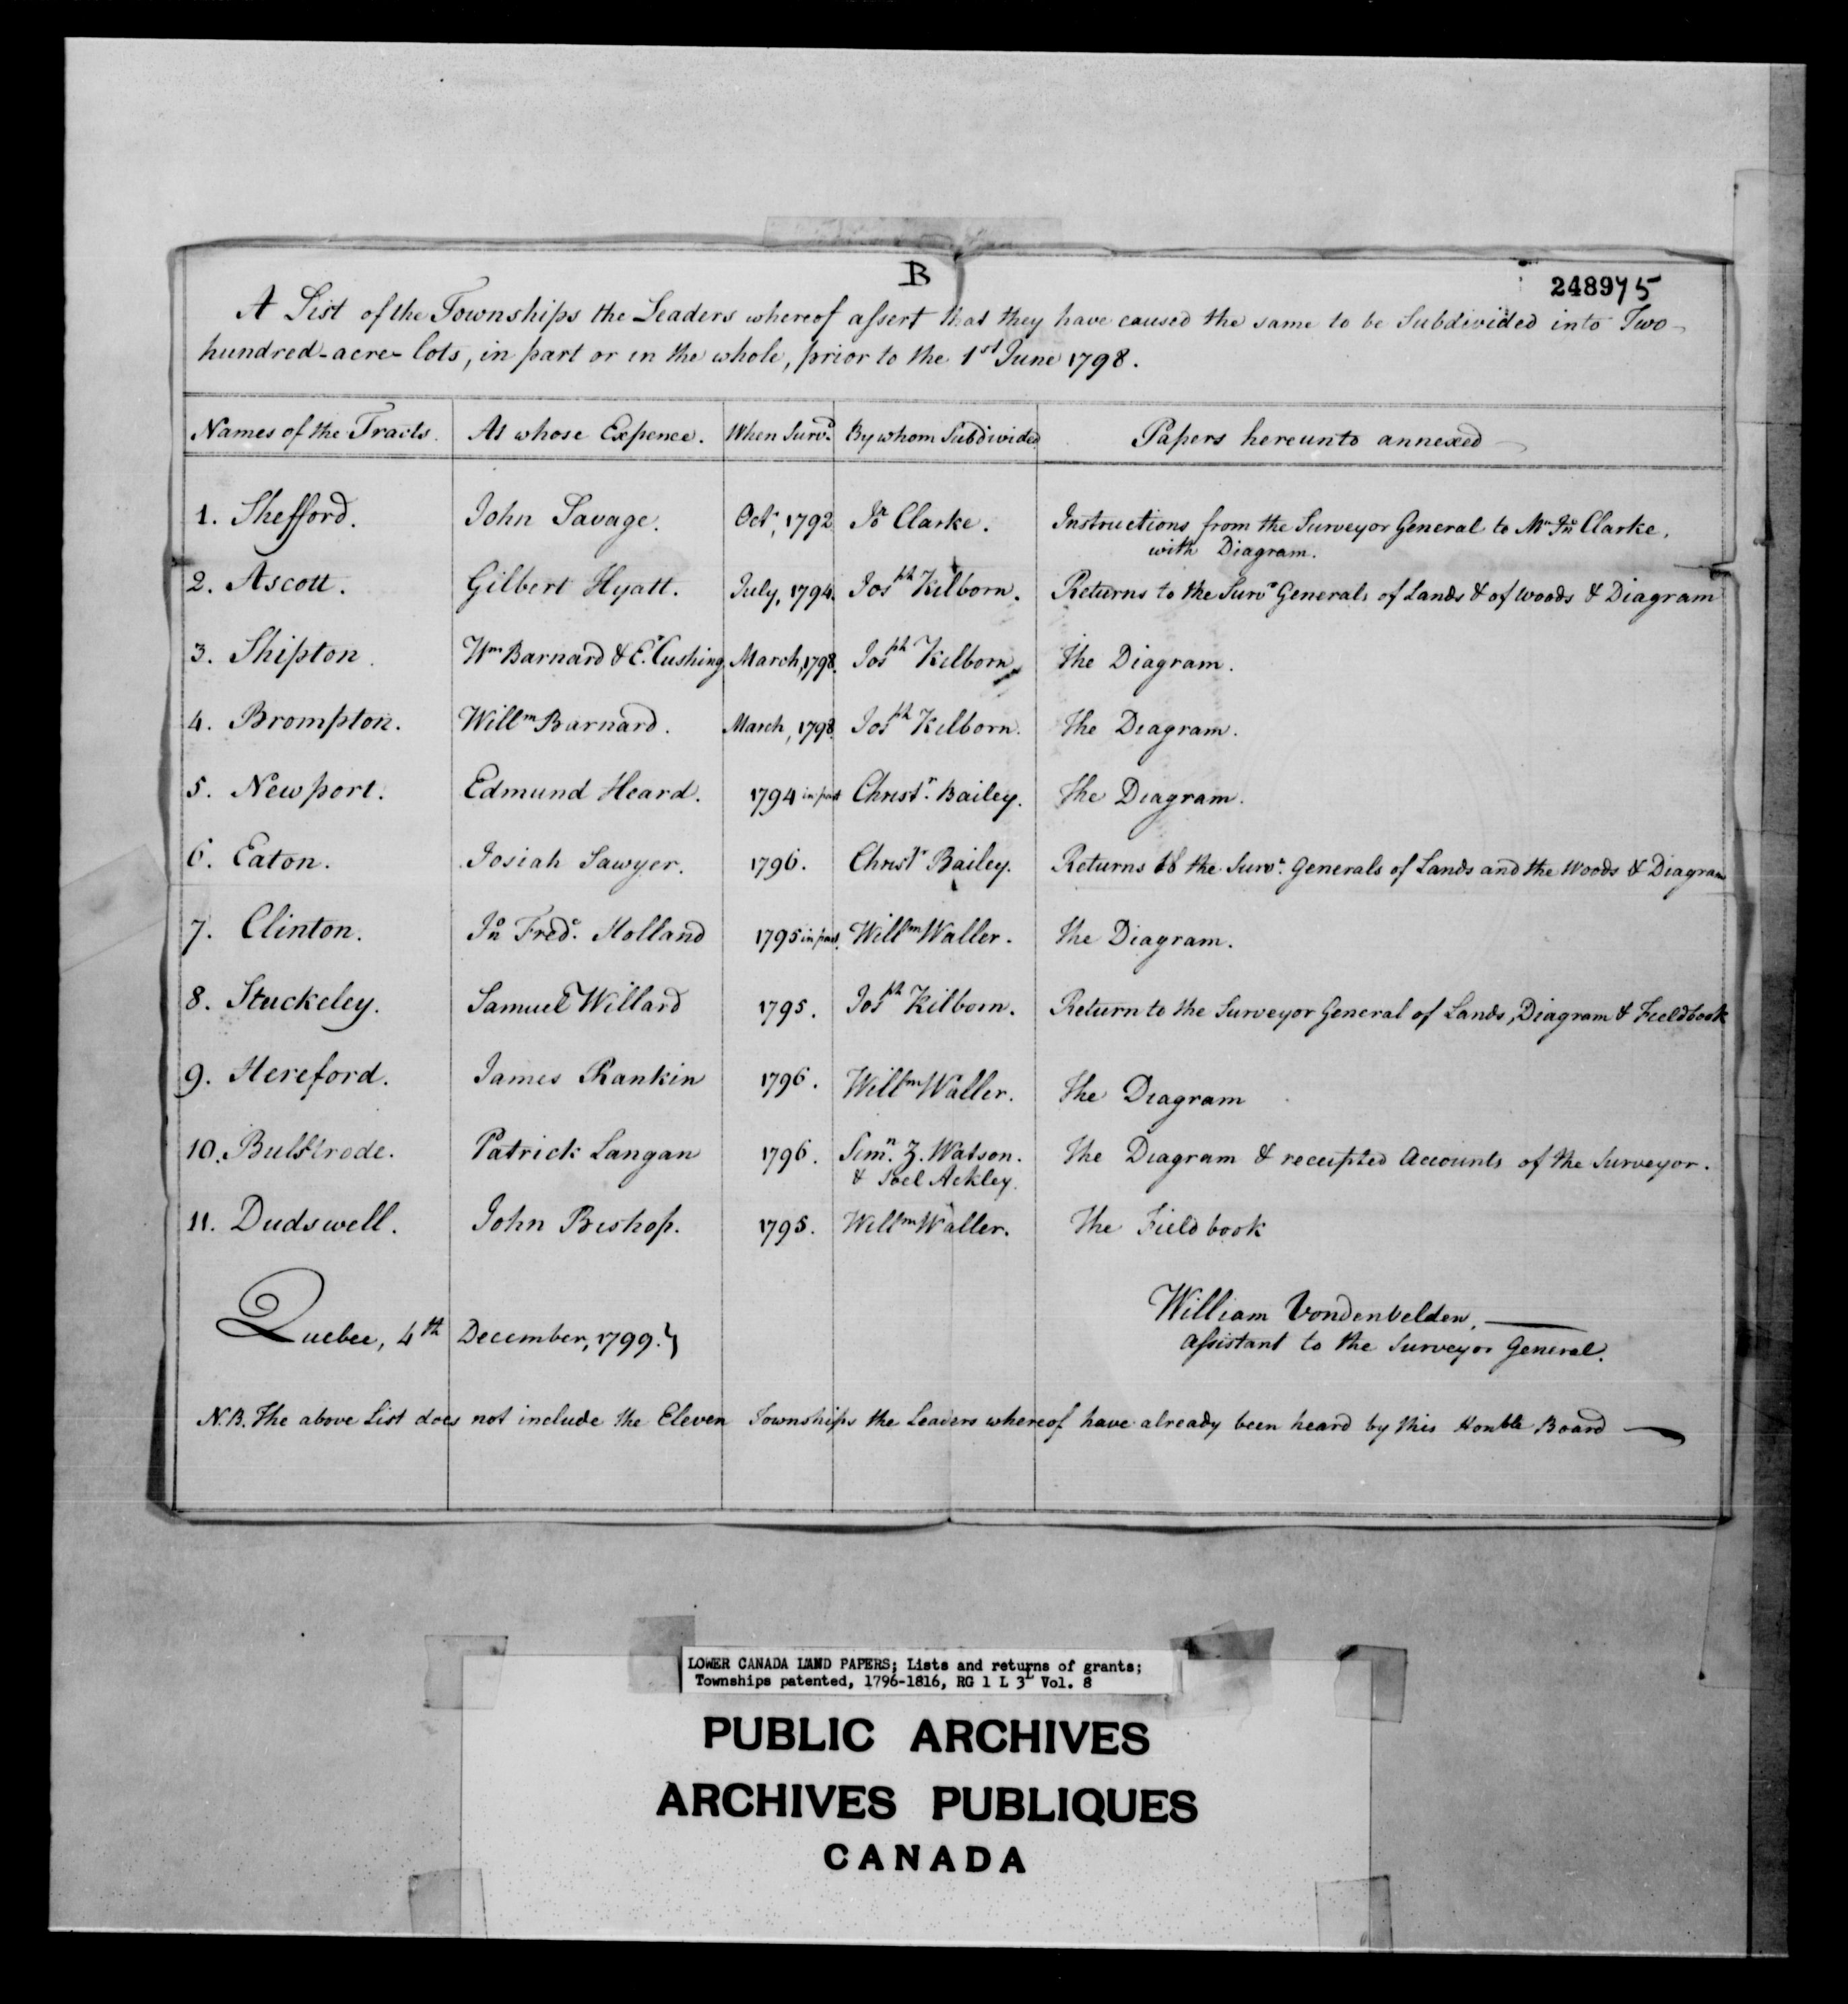 B
248975
A List of the Townships the Leaders whereof assert that they have caused the same to be Subdivided into Two-
hundred-acre-lots, in part or in the whole, prior to the 1st June 1798.
Names of the Tracts. At whose Expence. When Survd. By whom Subdivided Papers hereunto annexed
1. Shefford. John Savage. Octr, 1792 Jn Clarke. Instructions from the Surveyor General to Mr Jn Clarke,
with Diagram.
2. Ascott. Gilbert Hyatt. July, 1794. Josph Kilborn. Returns to the Survr Generals of Lands & of Woods & Diagram
3. Shipton. Wm Barnard & E. Cushing March, 1798. Josph Kilborn The Diagram.
4. Brompton. Willm Barnard. March, 1798. Josph Kilborn. The Diagram.
5. Newport. Edmund Heard. 1794 in part Christr. Bailey. The Diagram.
6. Eaton. Josiah Sawyer. 1796. Christr Bailey. Returns to the Survr. Generals of Lands and the Woods & Diagram
7. Clinton. Jn Fredc. Holland 1795 in part. Willm Waller. The Diagram.
8. Stuckeley. Samuel Willard 1795. Josph Kilborn. Return to the Surveyor General of Lands, Diagram & Fieldbook
9. Hereford. James Rankin 1796. Willm Waller. The Diagram
10. Bulstrode. Patrick Langan 1796. Simn. Z. Watson. The Diagram & receipted Accounts of the Surveyor.
& Joel Ackley.
11. Dudswell. John Bishop. 1795. Willm Waller. The Fieldbook
William Vondenvelden.
Quebec, 4th December, 1799.}
Assistant to the Surveyor General.
N.B. The above List does not include the Eleven Townships the Leaders whereof have already been heard by this Honble Board
LOWER CANADA LAND PAPERS; Lists and returns of grants;
Townships patented, 1796-1816, RG 1 L 3L Vol. 8
PUBLIC ARCHIVES
ARCHIVES PUBLIQUES
CANADA